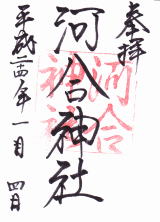 奉拝
河合神社
河合
神社
平成二十四年一月四日